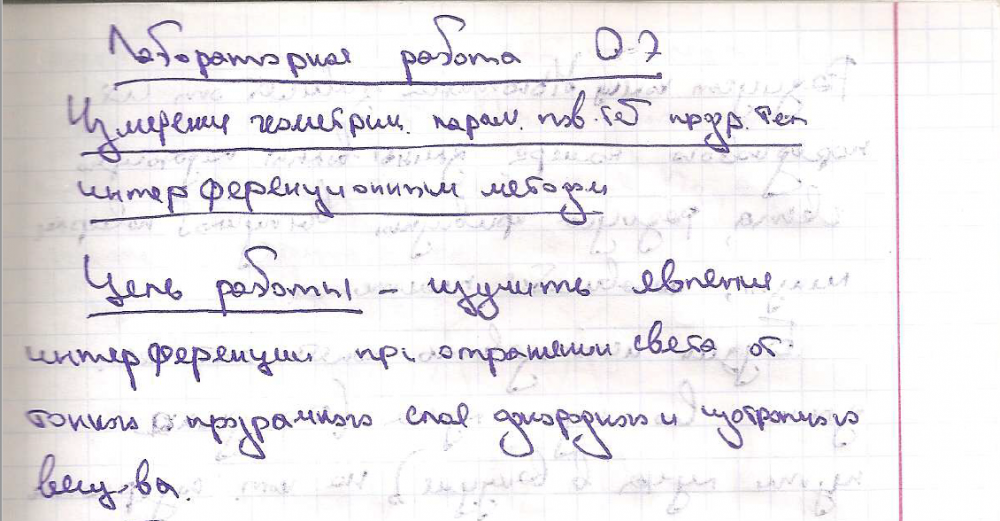 Лабораторная работа О-7
Измерение геометрич. парам. пов. тв прозр. тел
интерференционным методом
Цель работы - изучить явление
интерференции при отражении света от
тонкого прозрачного слоя однородного и изотропного
вещ-ва.